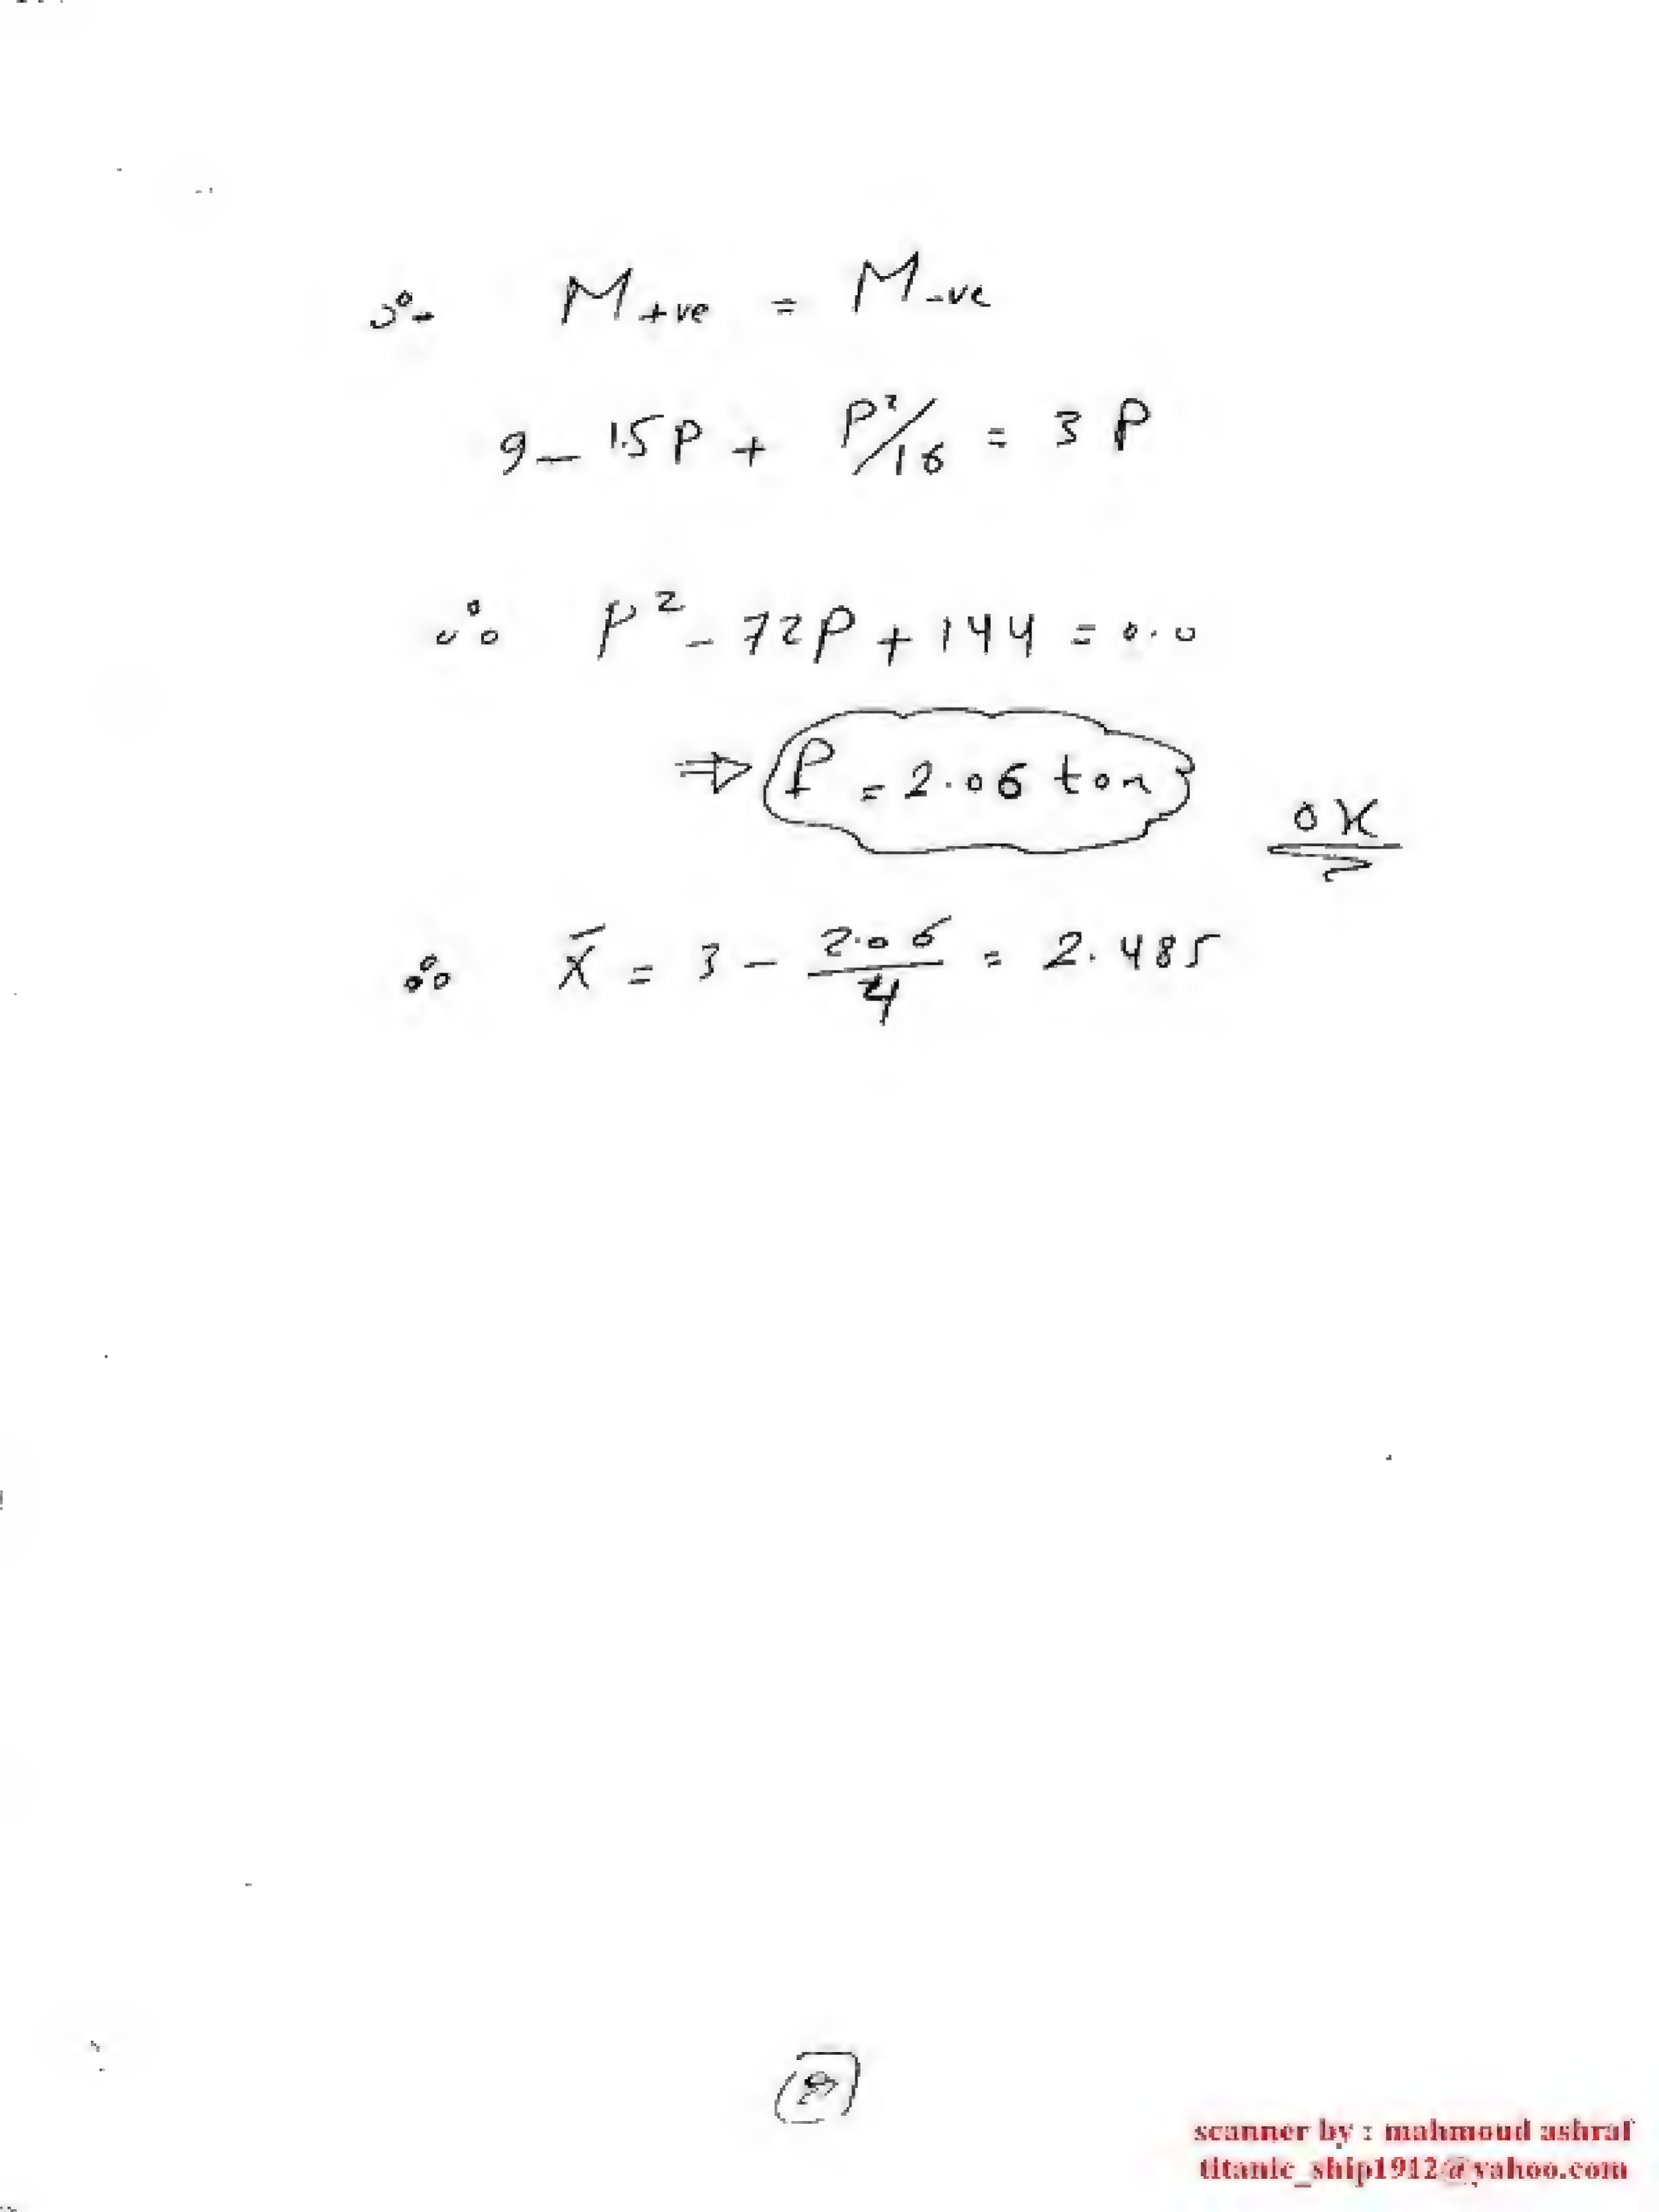 ∴ M+ve = M-ve
9 - 1.5P + P²/16 = 3 P
∴ P² - 72P + 144 = 0.0
⇒ P = 2.06 ton
OK
∴ x̄ = 3 - 2.06/4 = 2.485
scanner by : mahmoud ashraf
titanic_ship1912@yahoo.com